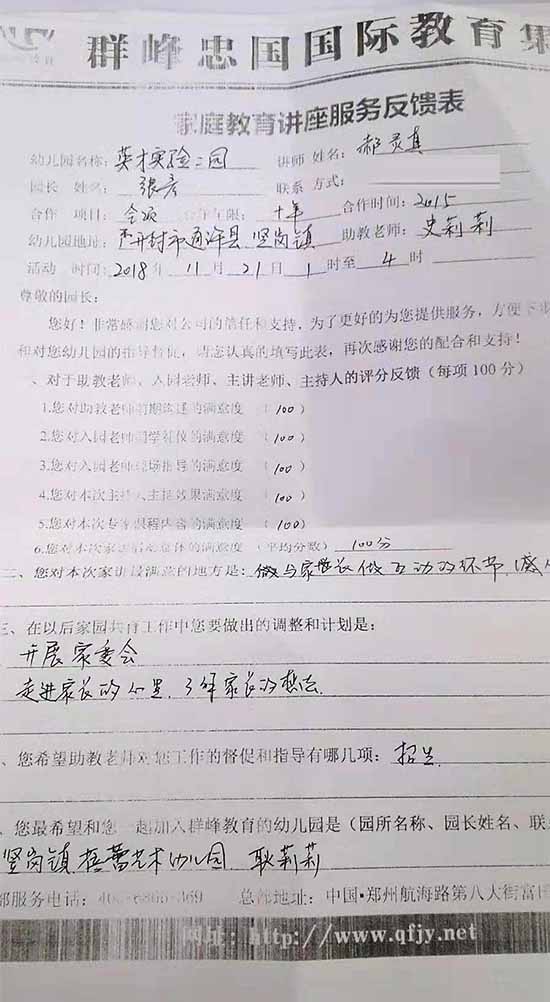 群峰忠国国际教育集
家庭教育讲座服务反馈表
幼儿园名称: 英才实验二园 讲师 姓名: 郝灵真
园长 姓名: 张彦 联系 方式:
合作 项目: 全项 合作年限: 十年 合作时间: 2015
幼儿园地址: 开封市通许县竖岗镇 助教老师: 史莉莉
活动 时间: 2018 年 11 月 21 日 1 时至 4 时
尊敬的园长:
您好!非常感谢您对公司的信任和支持,为了更好的为您提供服务,方便
和对您幼儿园的指导督促,请您认真的填写此表,再次感谢您的配合和支持!
、对于助教老师、入园老师、主讲老师、主持人的评分反馈(每项100分)
1.您对助教老师前期沟通的满意度 (100)
2.您对入园老师 礼仪的满意度 (100)
3.您对入园老师现场指导的满意度 (100)
4.您对本次主持人主持效果满意度 (100)
5.您对本次专家课程内容的满意度 (100)
6.您对本次家 体的满意度 (平均分数) 100分
二、您对本次家讲最满意的地方是: 与家长做互动的环节,
三、在以后家园共育工作中您要做出的调整和计划是:
开展家委会
走进家长的心里,了解家长的想法
、您希望助教老师对您工作的督促和指导有哪几项: 招生
、您最希望和您一起加入群峰教育的幼儿园是(园所名称、园长姓名、联
竖岗镇蓓蕾艺术幼儿园 耿莉莉
部服务电话: 400-6866-369 总部地址: 中国·郑州航海路第八大街富田
网址: http://www.qfjy.net